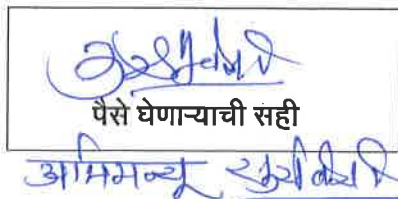 पैसे घेणाऱ्याची सही
अभिमन्यू सुर्यवंशी